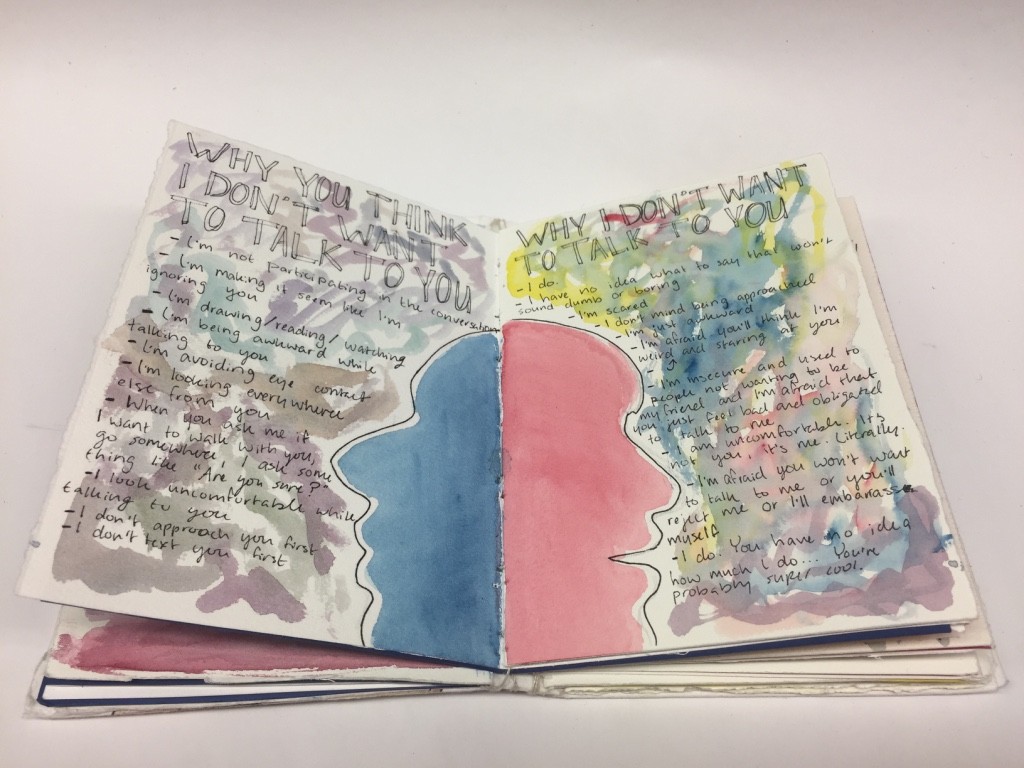 WHY YOU THINK
I DON'T WANT
TO TALK TO YOU
- I'm not participating in the conversation
- I'm making it seem like I'm
ignoring you
- I'm drawing/reading/watching
- I'm being awkward while
talking to you
- I'm avoiding eye contact
- I'm looking everywhere
else from you
- When you ask me if
I want to walk with you,
go somewhere, I ask some
thing like "Are you sure?"
- I look uncomfortable while
talking to you
- I don't approach you first
- I don't text you first
WHY I DON'T WANT
TO TALK TO YOU
- I do.
- I have no idea what to say that won't
sound dumb or boring
- I'm scared
- I don't mind being approached
- I'm just awkward
- I'm afraid you'll think I'm
weird and staring at you
- I'm insecure and used to
people not wanting to be
my friend and I'm afraid that
you just feel bad and obligated
to talk to me
- I am uncomfortable. It's
not you. It's me. Literally.
- I'm afraid you won't want
to talk to me or you'll
reject me or I'll embarrass
myself
- I do. You have no idea
how much I do... You're
probably super cool.